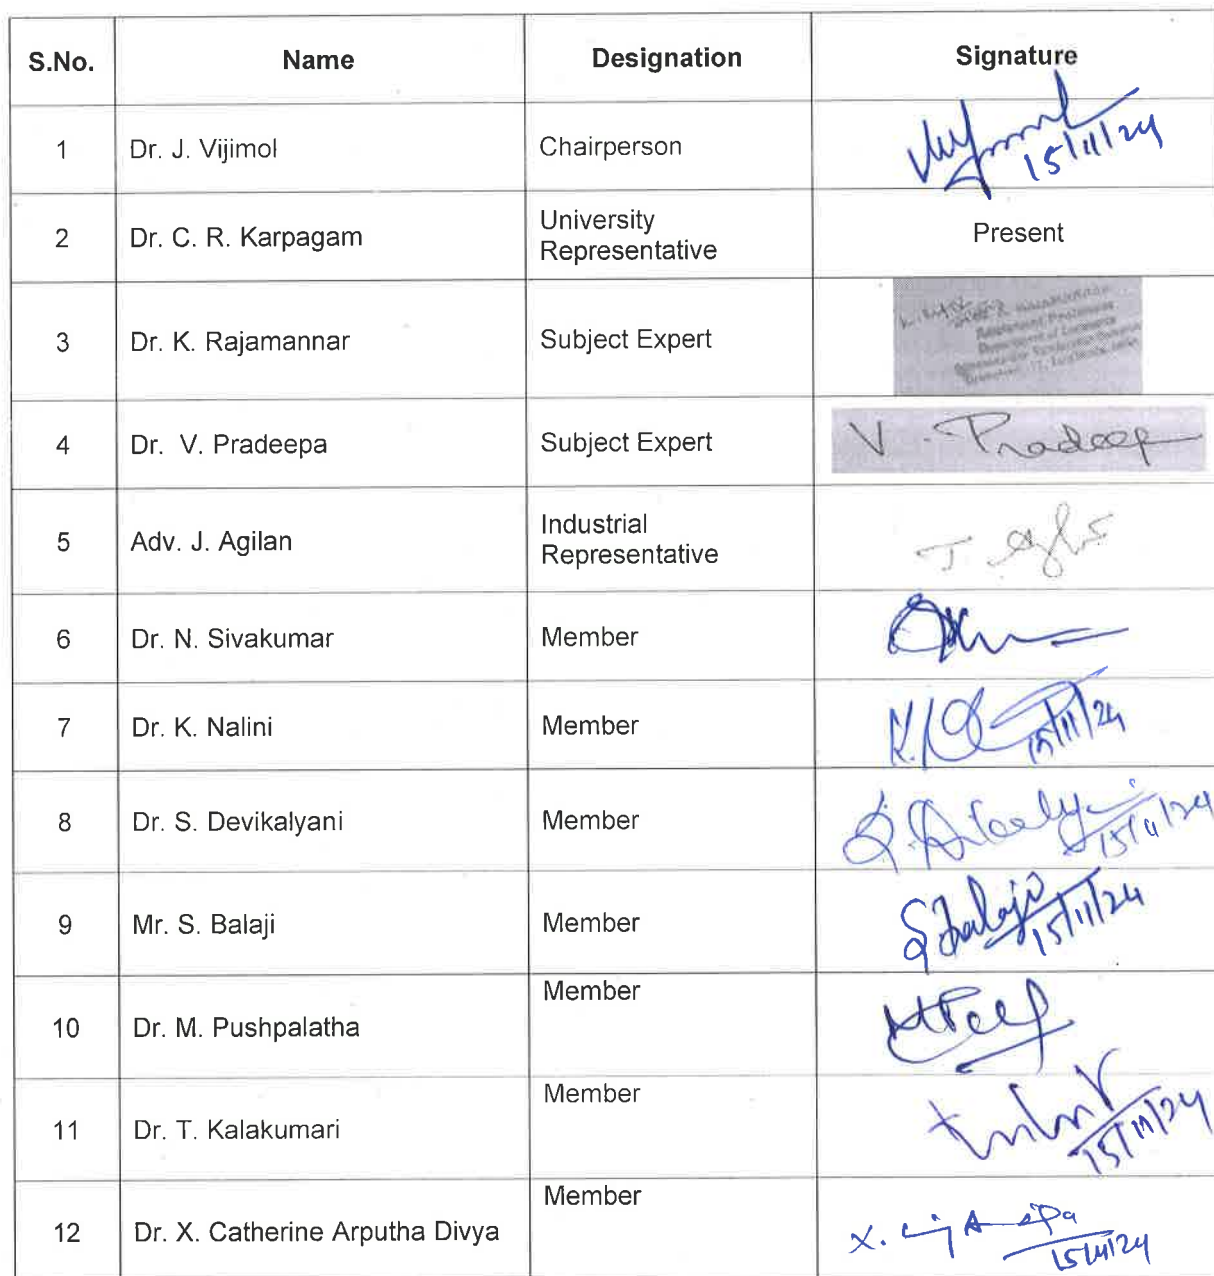 S.No. Name Designation Signature
1 Dr. J. Vijimol Chairperson
15/11/24
2 Dr. C. R. Karpagam University
Representative Present
3 Dr. K. Rajamannar Subject Expert
Department of Commerce
4 Dr. V. Pradeepa Subject Expert V. Pradeep
5 Adv. J. Agilan Industrial
Representative
6 Dr. N. Sivakumar Member
7 Dr. K. Nalini Member 15/11/24
8 Dr. S. Devikalyani Member 15/11/24
9 Mr. S. Balaji Member S Balaji
15/11/24
10 Dr. M. Pushpalatha Member
11 Dr. T. Kalakumari Member
15/11/24
12 Dr. X. Catherine Arputha Divya Member
15/11/24